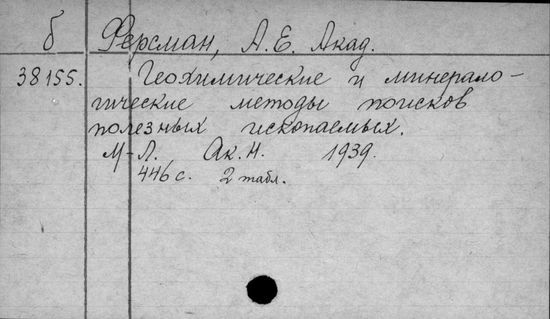 б Ферсман, А.Е. Акад.
38155. Геохимические и минерало-
гические методы поисков
полезных ископаемых.
М-Л. Ак.Н. 1939.
446 с. 2 табл.